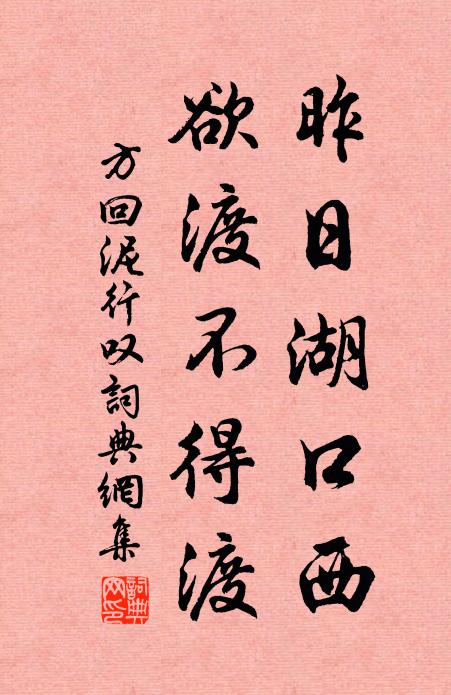 昨日湖口西
欲渡不得渡
方回泥行叹詞典網集
詞典
网印